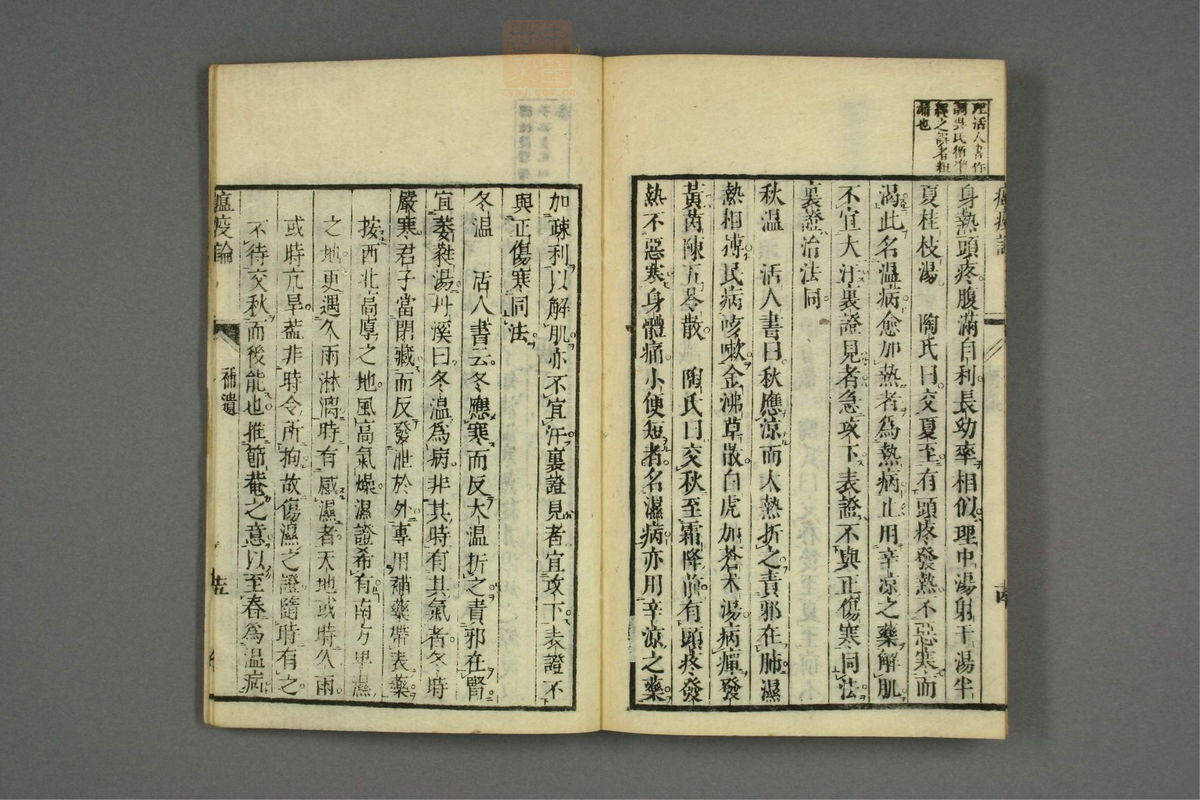 理活人書作
調吳氏循準
繩之誤者粗
漏也
身熱頭疼腹滿自利長幼率相似理中湯射干湯半
夏桂枝湯　陶氏曰交夏至有頭疼發熱不惡寒而
渴此名溫病愈加熱者為熱病止用辛凉之藥解肌
不宜大汗裏證見者急攻下表證不與正傷寒同法
裏證治法同
秋溫　活人書曰秋應凉而大熱折之責邪在肺濕
熱相搏民病咳嗽金沸草散白虎加蒼术湯病癉發
黃茵陳五苓散　陶氏曰交秋至霜降前有頭疼發
熱不惡寒身體痛小便短者名濕病亦用辛凉之藥
加疎利以解肌亦不宜汗裏證見者宜攻下表證不
與正傷寒同法
冬溫　活人書云冬應寒而反大溫折之責邪在腎
宜萎蕤湯丹溪曰冬溫為病非其時有其氣者冬時
嚴寒君子當閉藏而反發泄於外專用補藥帶表藥
按西北高厚之地風高氣燥濕證希有南方卑濕
之地更遇久雨淋漓時有感濕者天地或時久雨
或時亢旱蓋非時令所拘故傷濕之證隨時有之
不待交秋而後能也推節菴之意以至春為溫病
瘟疫論
補遺